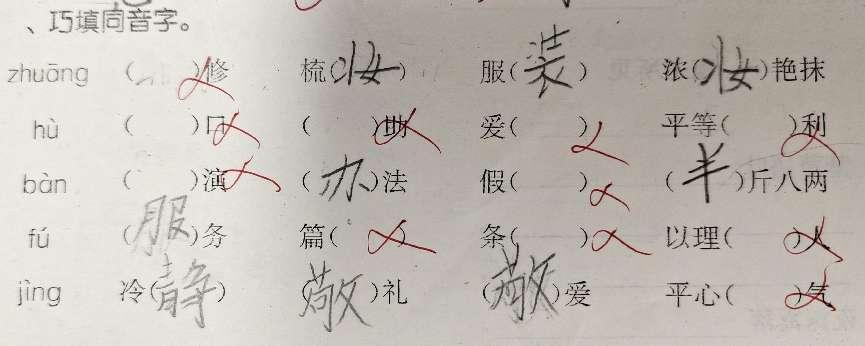 、巧填同音字。
zhuāng （ ）修 梳（妆） 服（装） 浓（妆）艳抹
hù （ ）口 （ ）助 爱（ ） 平等（ ）利
bàn （ ）演 （办）法 假（ ） （半）斤八两
fú （服）务 篇（ ） 条（ ） 以理（ ）人
jìng 冷（静） （敬）礼 （敬）爱 平心（ ）气